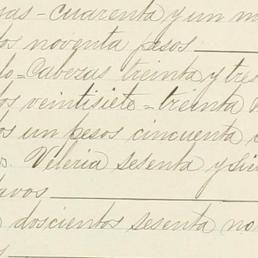 cuarenta y un m
os noventa pesos
lo = Cabezas treinta y tres
os veintisiete = treinta
os un pesos cincuenta c
s. Valeria sesenta y
avos
doscientos sesenta no